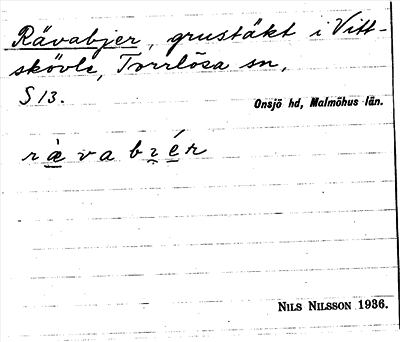 Rävabjer, grustäkt i Vitt-
skövle, Torrlösa sn,
S 13.
Onsjö hd, Malmöhus län.
ræ̀vabɪ̯ér
NILS NILSSON 1936.